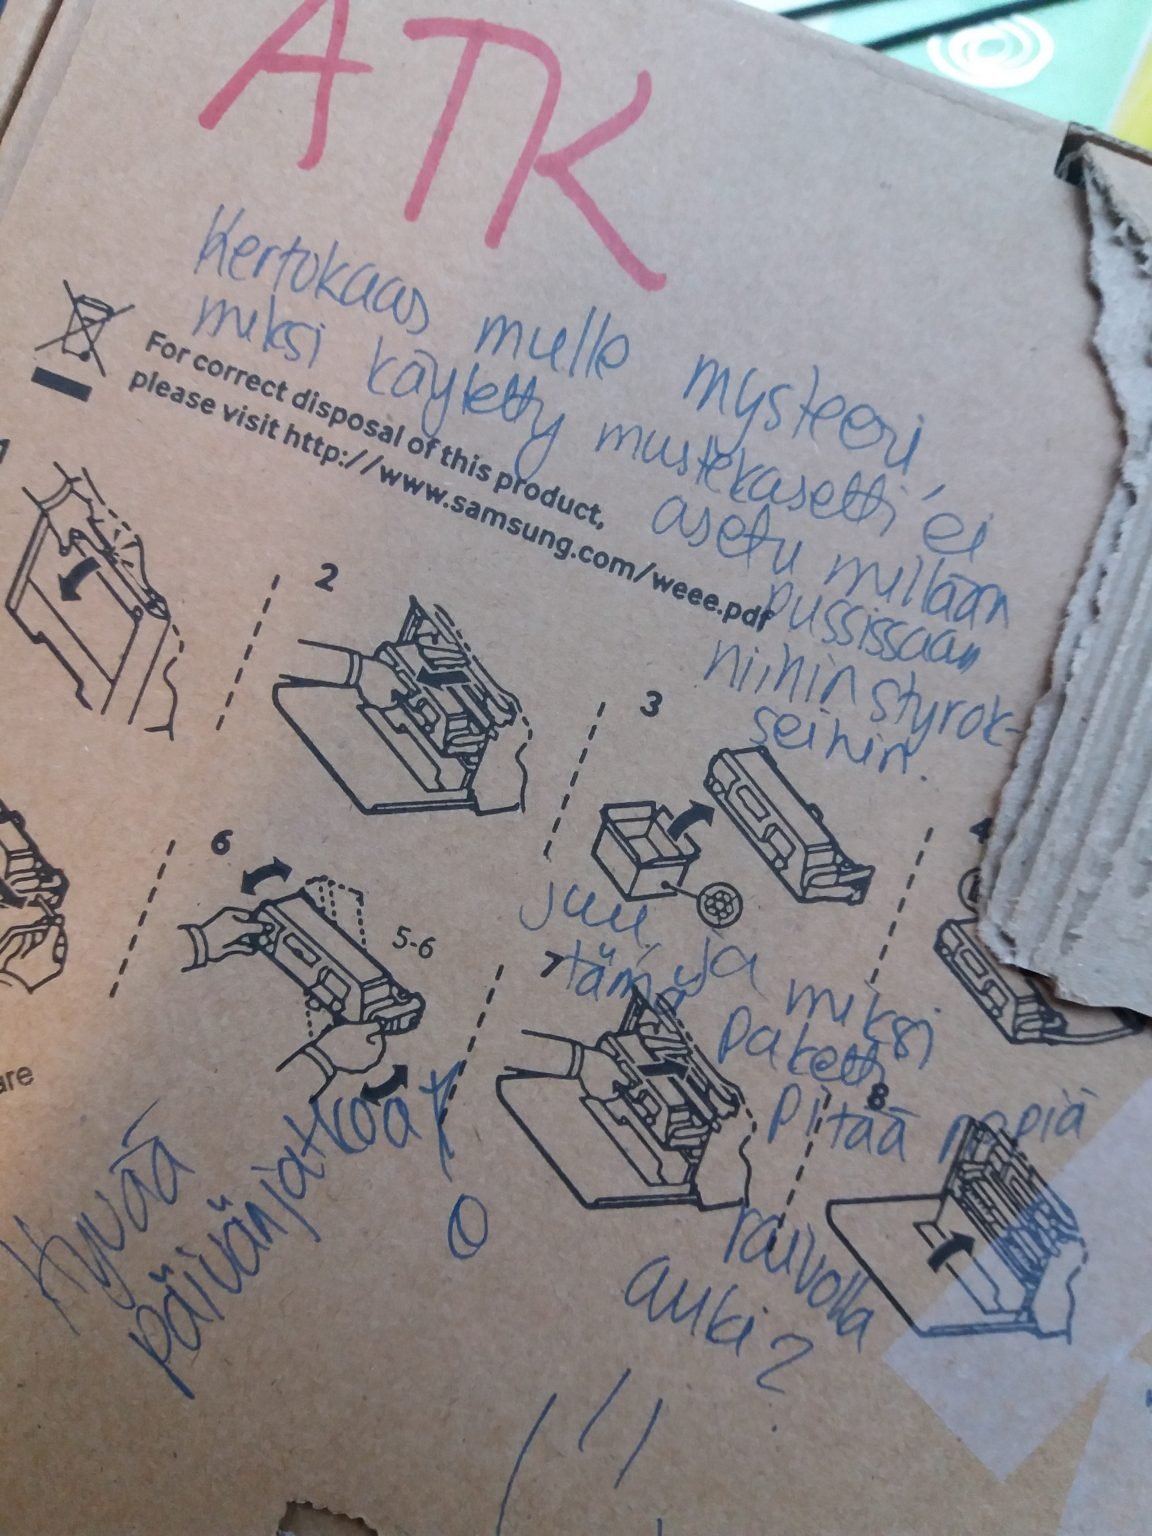 ATK
Kertokaas mulle mysteeri,
miksi käytetty mustekasetti ei
asetu millään
pussissaan
niihin styrok-
seihin.
For correct disposal of this product,
please visit http://www.samsung.com/weee.pdf
1
2
3
4
6
5-6
7
8
juu, ja miksi
tämä paketti
pitää repiä
raivolla
auki?
are
Hyvää
päivänjatkoa!